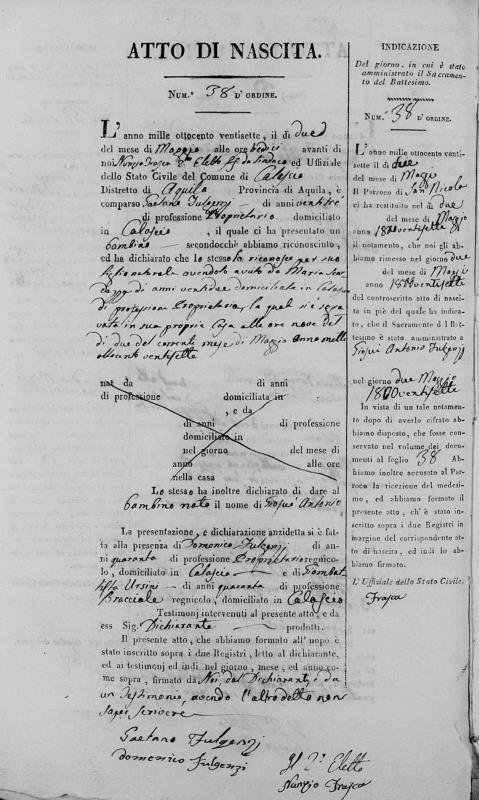 ATTO DI NASCITA.
Num.° 38 d'ordine.
L'anno mille ottocento ventisette, il dì due
del mese di Maggio alle ore tredici avanti di
noi Nunzio Frasca Eletto ff da Sindaco ed Uffiziale
dello Stato Civile del Comune di Calascio
Distretto di Aquila Provincia di Aquila, è
comparso Gaetano Fulgenzj di anni ventitré
di professione Proprietario domiciliato
in Calascio, il quale ci ha presentato un
bambino secondocchè abbiamo riconosciuto,
ed ha dichiarato che lo stesso lo riconosce per suo
figlio naturale avendolo avuto da Maria
di anni ventidue domiciliata in Calascio
di professione Proprietaria, la quale si è sgra
vata in sua propria Casa alle ore nove del
dì due del corrente mese di Maggio anno mille
ottocento ventisette
nat da di anni
di professione domiciliata in
, e da
di anni di professione
domiciliato in
nel giorno del mese di
anno alle ore
nella casa
Lo stesso ha inoltre dichiarato di dare al
bambino nato il nome di Giosuè Antonio
La presentazione, e dichiarazione anzidetta si è fat-
ta alla presenza di Domenico Fulgenzj di an-
ni quaranta di professione Proprietario regnico-
lo, domiciliato in Calascio e di Giambat
tista Ursini di anni quaranta di professione
Bracciale regnicolo, domiciliato in Calascio
Testimonj intervenuti al presente atto, e da
ess Sig. Dichiarante prodotti.
Il presente atto, che abbiamo formato all'uopo è
stato inscritto sopra i due Registri, letto al dichiarante,
ed ai testimonj ed indi nel giorno, mese, ed anno co-
me sopra, firmato da Noi, dal Dichiarante, e da
un Testimonio, avendo l'altro detto non
saper scrivere
Gaetano Fulgenzj
Domenico Fulgenzi
Il 2° Eletto
Nunzio Frasca
INDICAZIONE
Del giorno, in cui è stato
amministrato il Sacramen-
to del Battesimo.
Num.° 38 d'ordine.
L'anno mille ottocento venti-
sette il dì due
del mese di Maggio
Il Parroco di San Nicola
ci ha restituito nel dì due
del mese di Maggio
anno 1800ventisette
il notamento, che noi gli ab-
biamo rimesso nel giorno due
del mese di Maggio
anno 1800ventisette
del controscritto atto di nasci-
ta in piè del quale ha indica-
to, che il Sacramento del Bat-
tesimo è stato amministrato a
Giosuè Antonio Fulgenzj
nel giorno due Maggio
1800ventisette
In vista di un tale notamento
dopo di averlo cifrato ab-
biamo disposto, che fosse conser-
vato nel volume dei docu-
menti al foglio 38 Ab-
biamo inoltre accusato al Par-
roco la ricezione del medesi-
mo, ed abbiamo formato il
presente atto, ch'è stato in-
scritto sopra i due Registri in
margine del corrispondente atto
di nascita, ed indi lo ab-
biamo firmato.
L'Uffiziale dello Stato Civile,
Frasca